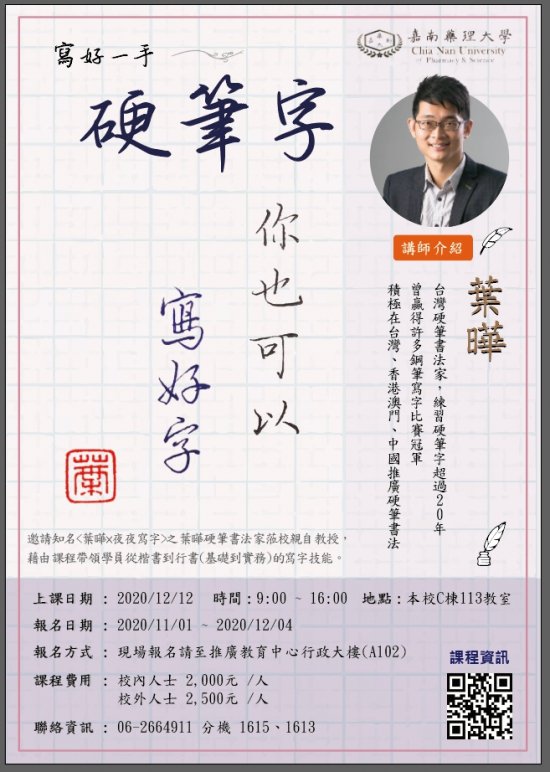 寫好一手
硬筆字
嘉南藥理大學
Chia Nan University
of Pharmacy & Science
你也可以
寫好字
葉
講師介紹
葉曄
台灣硬筆書法家，練習硬筆字超過20年
曾贏得許多鋼筆寫字比賽冠軍
積極在台灣、香港澳門、中國推廣硬筆書法
邀請知名<葉曄x夜夜寫字>之葉曄硬筆書法家蒞校親自教授，
藉由課程帶領學員從楷書到行書(基礎到實務)的寫字技能。
上課日期 : 2020/12/12 時間 : 9:00 ~ 16:00 地點 : 本校C棟113教室
報名日期 : 2020/11/01 ~ 2020/12/04
報名方式 : 現場報名請至推廣教育中心行政大樓(A102)
課程費用 : 校內人士 2,000元 /人
校外人士 2,500元 /人
聯絡資訊 : 06-2664911 分機 1615、1613
課程資訊